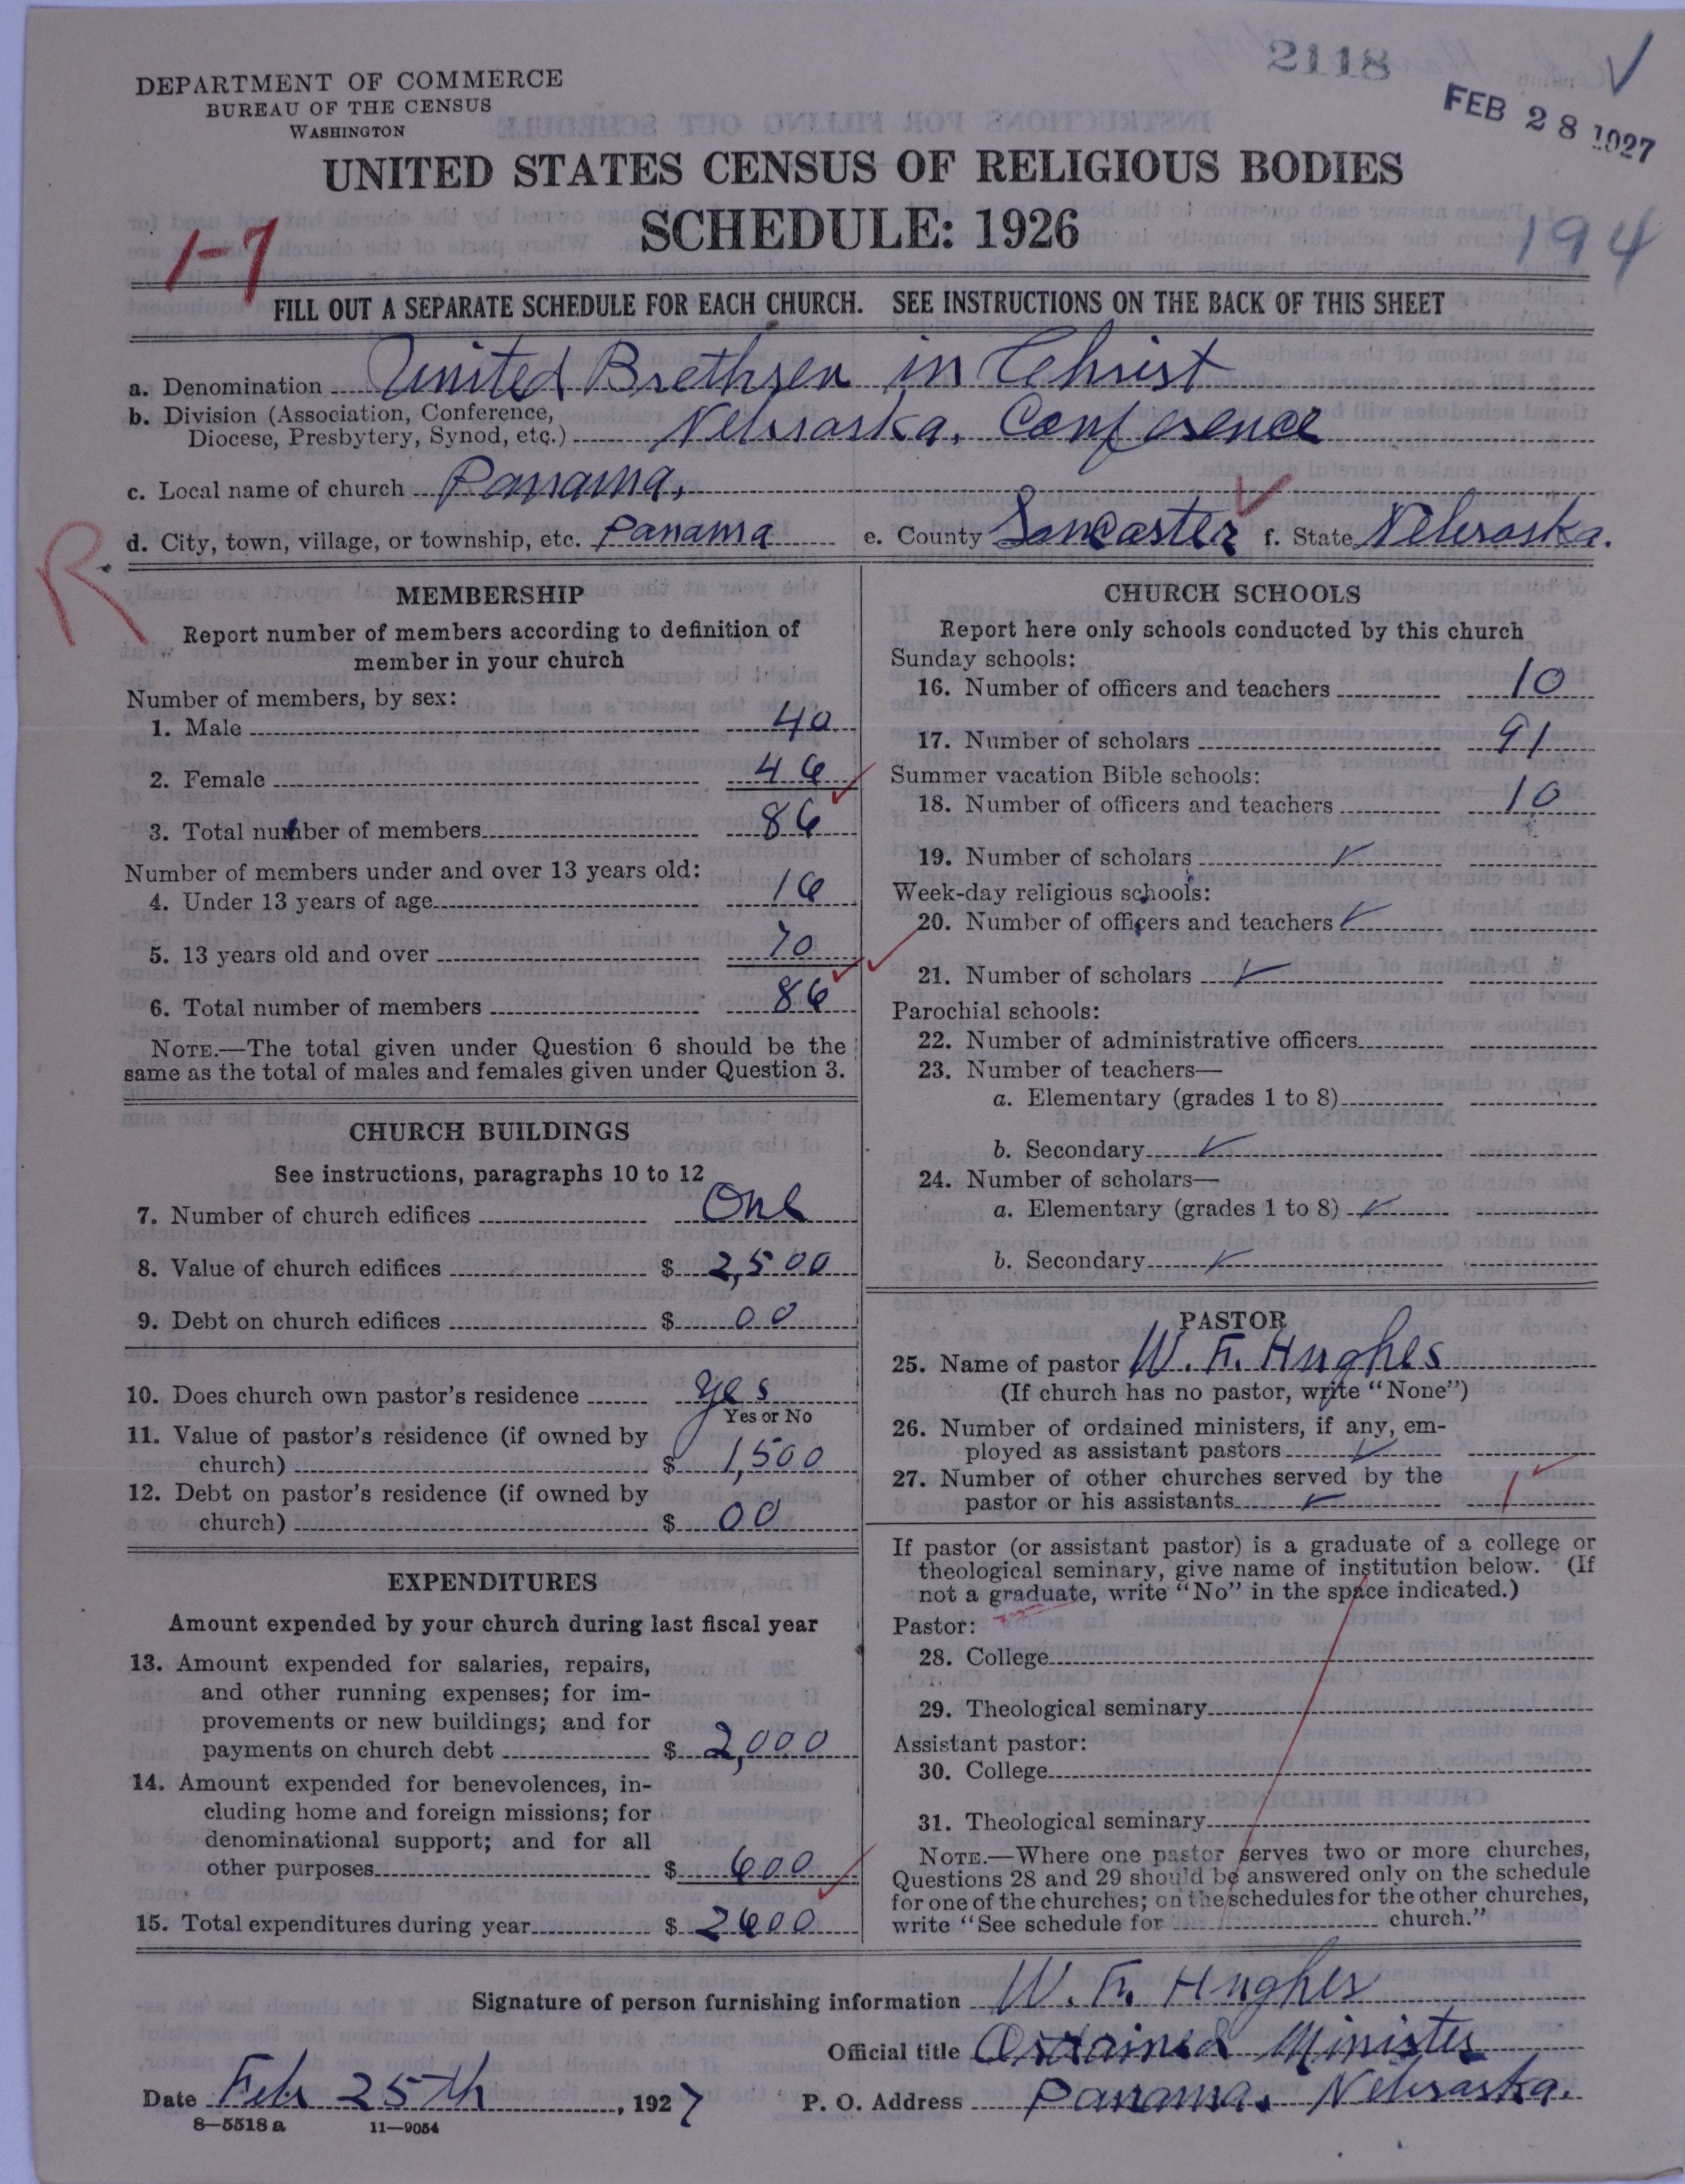 2118
FEB 28 1927
DEPARTMENT OF COMMERCE
BUREAU OF THE CENSUS
WASHINGTON
UNITED STATES CENSUS OF RELIGIOUS BODIES
SCHEDULE: 1926
1-7
194
FILL OUT A SEPARATE SCHEDULE FOR EACH CHURCH. SEE INSTRUCTIONS ON THE BACK OF THIS SHEET
a. Denomination United Brethren in Christ
b. Division (Association, Conference,
Diocese, Presbytery, Synod, etc.) Nebraska, Conference
c. Local name of church Panama,
d. City, town, village, or township, etc. Panama e. County Lancaster f. State Nebraska.
R
MEMBERSHIP
Report number of members according to definition of
member in your church
Number of members, by sex:
1. Male 40
2. Female 46
3. Total number of members 86
Number of members under and over 13 years old:
4. Under 13 years of age 16
5. 13 years old and over 70
6. Total number of members 86
NOTE.—The total given under Question 6 should be the
same as the total of males and females given under Question 3.
CHURCH BUILDINGS
See instructions, paragraphs 10 to 12
7. Number of church edifices One
8. Value of church edifices $ 2,500
9. Debt on church edifices $ 00
10. Does church own pastor's residence yes
Yes or No
11. Value of pastor's residence (if owned by
church) $ 1,500
12. Debt on pastor's residence (if owned by
church) $ 00
EXPENDITURES
Amount expended by your church during last fiscal year
13. Amount expended for salaries, repairs,
and other running expenses; for im-
provements or new buildings; and for
payments on church debt $ 2,000
14. Amount expended for benevolences, in-
cluding home and foreign missions; for
denominational support; and for all
other purposes $ 600
15. Total expenditures during year $ 2600
CHURCH SCHOOLS
Report here only schools conducted by this church
Sunday schools:
16. Number of officers and teachers 10
17. Number of scholars 91
Summer vacation Bible schools:
18. Number of officers and teachers 10
19. Number of scholars
Week-day religious schools:
20. Number of officers and teachers
21. Number of scholars
Parochial schools:
22. Number of administrative officers
23. Number of teachers—
a. Elementary (grades 1 to 8)
b. Secondary
24. Number of scholars—
a. Elementary (grades 1 to 8)
b. Secondary
PASTOR
25. Name of pastor W. F. Hughes
(If church has no pastor, write "None")
26. Number of ordained ministers, if any, em-
ployed as assistant pastors
27. Number of other churches served by the
pastor or his assistants 1
If pastor (or assistant pastor) is a graduate of a college or
theological seminary, give name of institution below. (If
not a graduate, write "No" in the space indicated.)
Pastor:
28. College
29. Theological seminary
Assistant pastor:
30. College
31. Theological seminary
NOTE.—Where one pastor serves two or more churches,
Questions 28 and 29 should be answered only on the schedule
for one of the churches; on the schedules for the other churches,
write "See schedule for church."
Signature of person furnishing information W. F. Hughes
Official title Ordained Minister
Date Feb 25th, 1927 P. O. Address Panama, Nebraska.
8—5518 a 11—9054